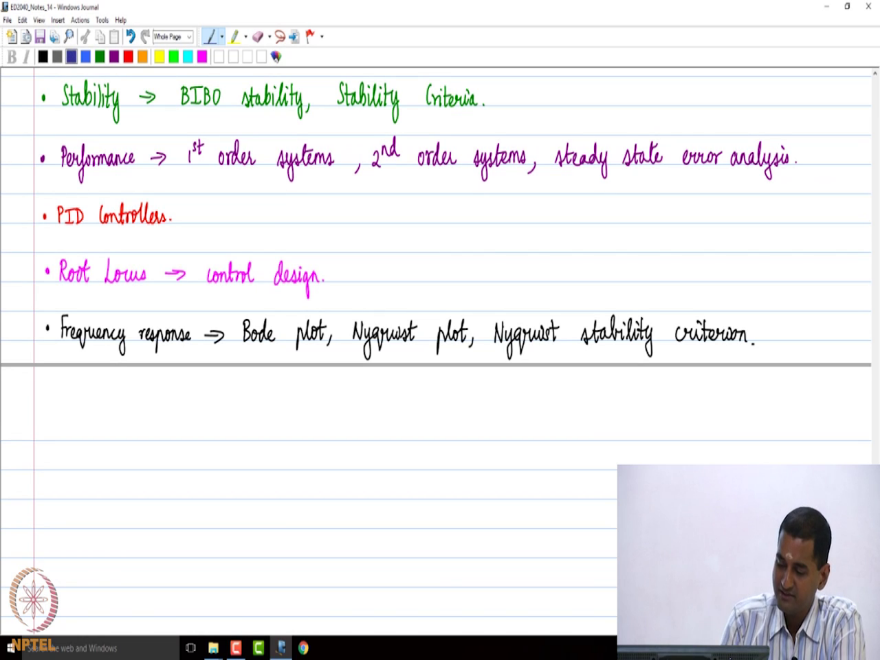 ED2040_Notes_14 - Windows Journal
File Edit View Insert Actions Tools Help
Whole Page
B I
• Stability → BIBO stability, Stability Criteria.
• Performance → 1st order systems, 2nd order systems, steady state error analysis.
• PID Controllers.
• Root Locus → control design.
• Frequency response → Bode plot, Nyquist plot, Nyquist stability criterion.
NPTEL
the web and Windows